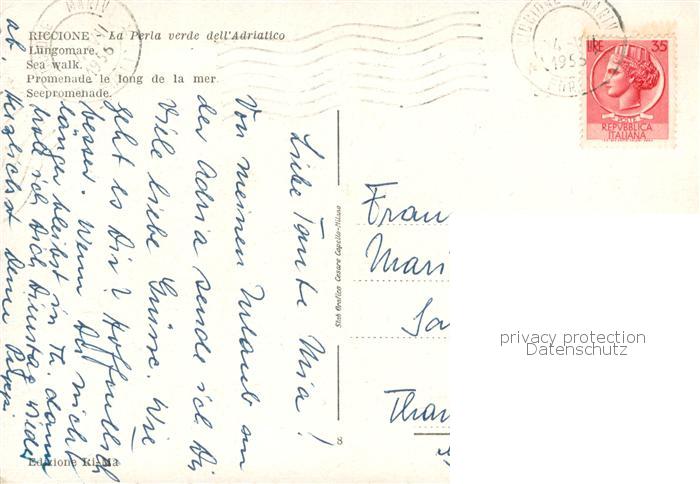 RICCIONE - La Perla verde dell'Adriatico
Lungomare.
Sea walk.
Promenade le long de la mer.
Seepromenade.
Liebe Tante Mia!
Von meinem Urlaub an
der Adria sende ich Dir
Viele liebe Grüsse. Wie
geht es Dir? Hoffentlich
besser. Wenn Du nicht
länger bleibst in Th. dann
hol ich Dich Dienstag wieder
ab. Herzlichst Deine
Stab Grafico Cesare Capello-Milano
8
Edizione Ri-Ma
1955
1955
LIRE 35
POSTE
REPVBBLICA
ITALIANA
Frau
Mari
Sa
Than
privacy protection
Datenschutz